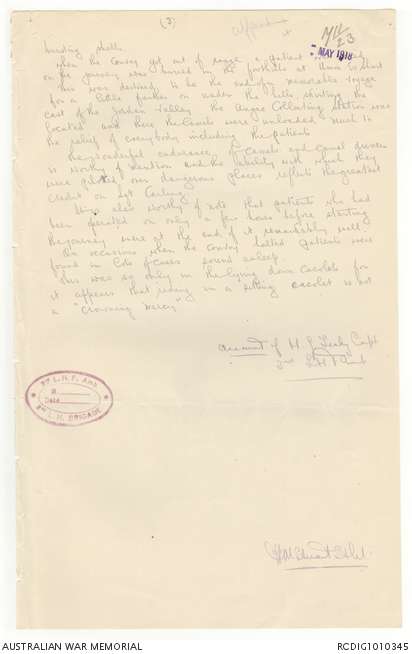 (3)
Append
MAY 1918
bursting shells.
When the Convoy got out of range a patient who died
on the journey was buried by the
This was destined to be the end of a memorable voyage
for a little further on under the hills skirting the
east of the Jordan Valley the Anzac Collecting Station was
located and here the Camels were unloaded much to
the relief of everybody including the patients
The wonderful endurance of Camels and Camel drivers
is worthy of mention and the ability with which they
were piloted over dangerous places reflects the greatest
Credit on Sgt
It is also worthy of note that patients who had
been operated on only a few hours before starting
the journey were at the end of it remarkably well
On occasions when the Convoy halted patients were
found in of cases sound asleep.
This was so only in the lying down cacolet for
it appears that riding in a sitting cacolet is not
a "crowning mercy"
account of H G Capt
2nd L H F Amb
L. H. F. AMB
Date
L. H. BRIGADE
AUSTRALIAN WAR MEMORIAL
RCDIG1010345